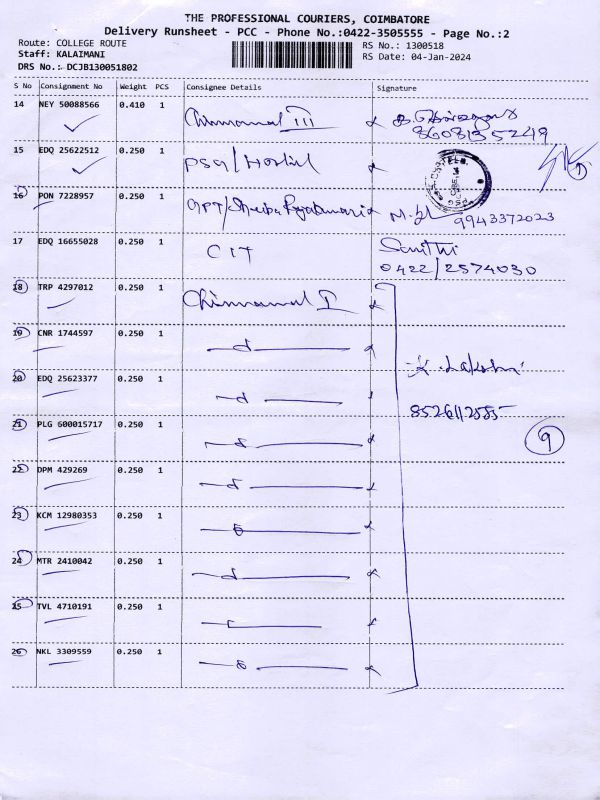 THE PROFESSIONAL COURIERS, COIMBATORE
Delivery Runsheet - PCC - Phone No.:0422-3505555 - Page No.:2
Route: COLLEGE ROUTE
RS No.: 1300518
Staff: KALAIMANI
RS Date: 04-Jan-2024
DRS No.: DCJB130051802
S No Consignment No Weight PCS Consignee Details Signature
14 NEY 50088566 0.410 1 Chinnamal III
8608135249
15 EDQ 25622512 0.250 1 PSG/Hostel
16 PON 7228957 0.250 1
9943372023
17 EDQ 16655028 0.250 1 CIT
0422/2574030
18 TRP 4297012 0.250 1 Chinnamal I
19 CNR 1744597 0.250 1
20 EDQ 25623377 0.250 1
K. Lakshi
8526112585
21 PLG 600015717 0.250 1
9
22 DPM 429269 0.250 1
23 KCM 12980353 0.250 1
24 MTR 2410042 0.250 1
25 TVL 4710191 0.250 1
26 NKL 3309559 0.250 1